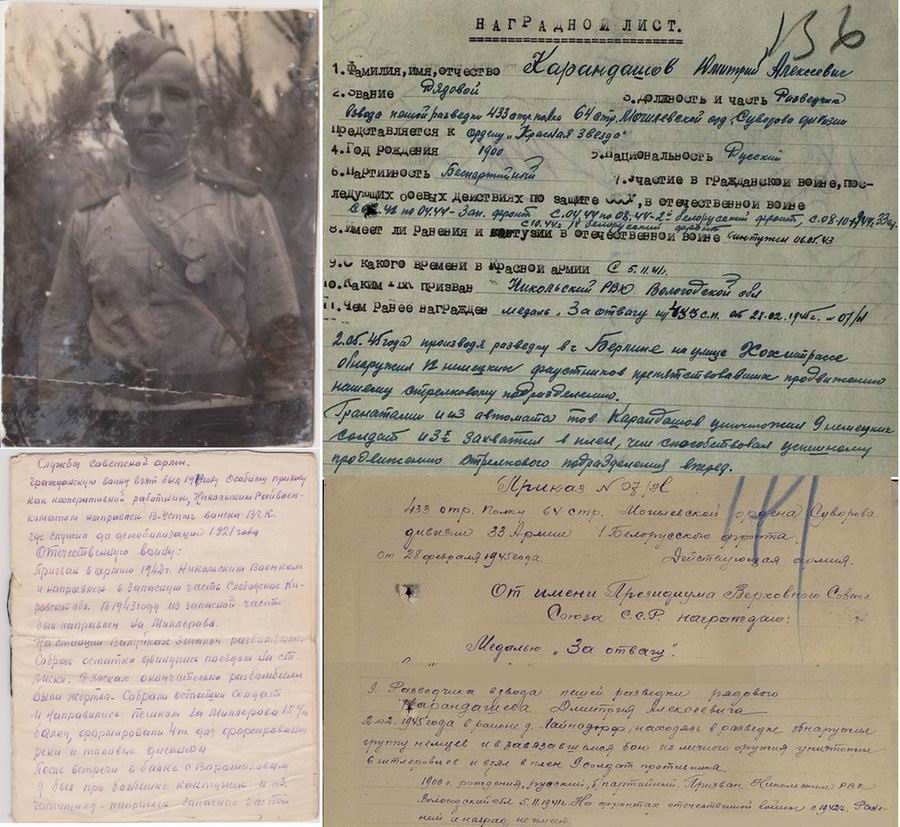 НАГРАДНОЙ ЛИСТ.
1.Фамилия,имя,отчество Карандашов Дмитрий Алексеевич
2.Звание Рядовой 3.Должность и часть Разведчик
взвода пешей разведки 433 стр. полка 64 стр. Могилевской орд. Суворова дивизии
Представляется к ордену „Красная звезда"
4.Год рождения 1900 5.Национальность Русский
6.Партийность Беспартийный 7.Участие в гражданской войне, пос-
ледующих боевых действиях по защите СССР, в отечественной войне
по 04.44 - Зап. фронт с 04.44 по 08.44 - 2й белорусский фронт, с 08-10.1944
с 10.44 г. 1й белорусский фронт
8.Имеет ли ранения и контузии в отечественной войне контужен 06.05.43
9.С какого времени в Красной армии с 5.11.41г.
10.Каким РВК призван Никольский РВК Вологодской обл
11.Чем ранее награжден медаль „За отвагу" 433 с.п. от 28.02.1945г. № 07/Н
2.05.45 года производя разведку в г Берлине на улице Кохштрассе
обнаружил 12 немецких фаустников препятствовавших продвижению
нашему стрелковому подразделению.
Гранатами и из автомата тов Карандашов уничтожил 9 немецких
солдат и 3х захватил в плен, чем способствовал успешному
продвижению стрелкового подразделения вперед.
Служба советской арми.
Гражданскую войну взят был по Особому приказу
как кооперативный работник, Никольским Райвоен-
коматом направлен В-Устюг войска ВЧК
где служил до демобилизации 1921 года
Отечественную войну:
Призван в армию 1942г. Никольским Военком
и направлен в Запасную часть Слободское Ки-
ровской обл. В 1943 году из запасной части
был направлен на Миллерово.
На станции Валуйках эшелон разбомбили.
Собрав остатки двинулись поездом на ст.
Лиски. В Лисках окончательно разбомбили
были жертвы. Собрали остатки Солдат
и направились пешком на Миллерово 15 км
балку, формировали для форсирования
реки и тыловые
После встречи в балке с Ворошиловым
Я был при бомбежке контужен и из
госпиталя направлен Запасную часть
Приказ № 07/Н
433 стр. Полку 64 стр. Могилевской ордена Суворова
дивизии 33 Армии 1 Белорусского фронта.
от 28 февраля 1945 года. Действующая армия.
От имени Президиума Верховного Совета
Союза С.С.Р. награждаю:
Медалью „За отвагу".
9. Разведчика взвода пешей разведки рядового
Карандашева Дмитрия Алексеевича
2.02.1945 года в районе д. находясь в разведке обнаружил
группу немцев и в завязавшимся бою из личного оружия уничтожил
6 гитлеровцев и взял в плен 9 солдат противника
1900 г. рождения, русский, б/партийный Призван Никольским РВК
Вологодской обл 5.11.1941г. На фронтах отечественной войны с 1942г. Ране-
ний и наград не имеет.